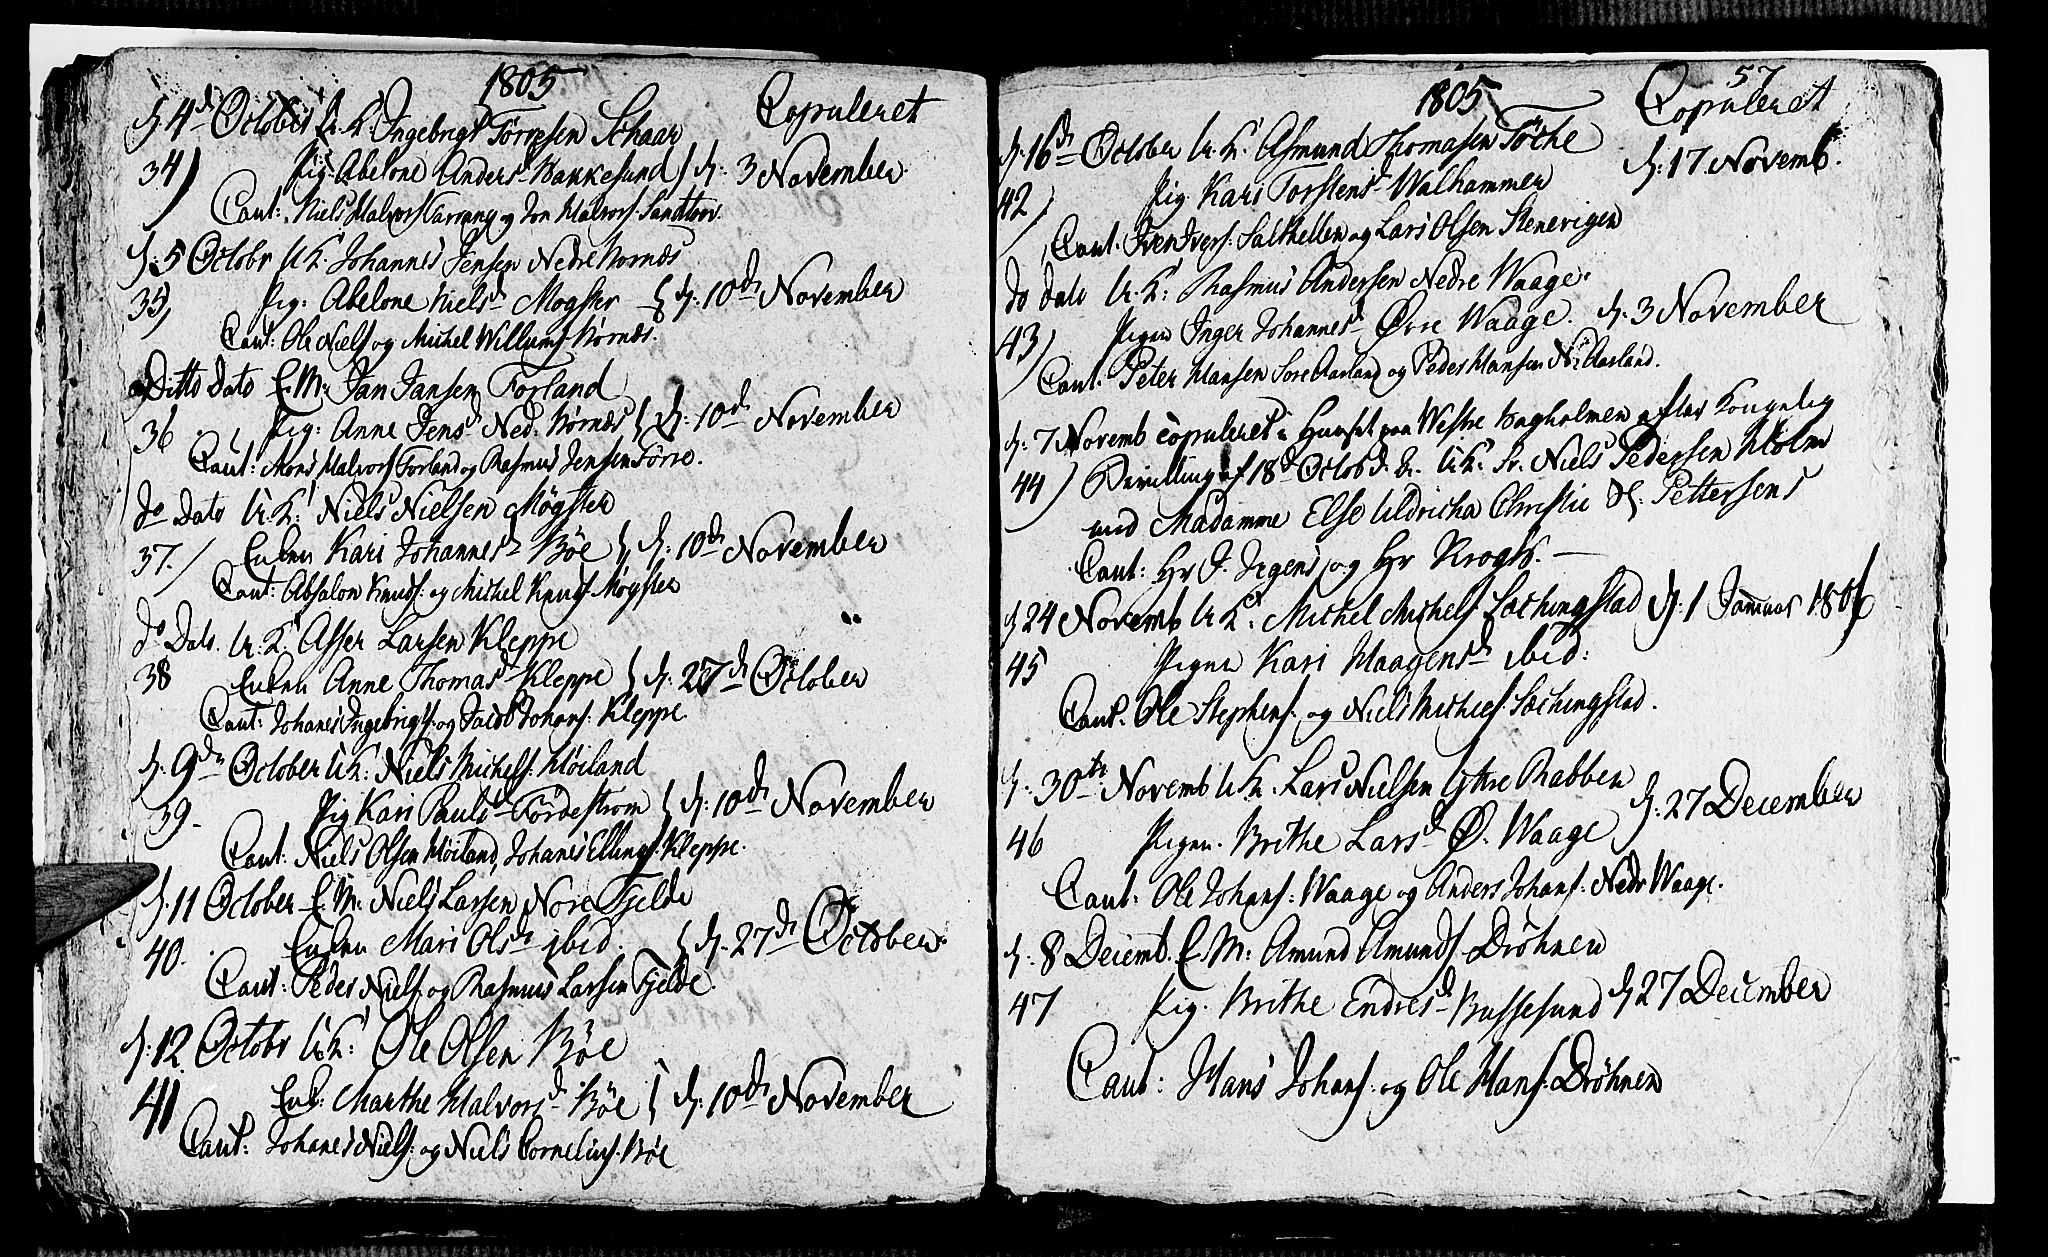 1805
Copuleret
d: 4d October U.K. Ingebrigt Schaar
34) Pig. Abelone Andersd Bakkesund d: 3 November
Caut: Niels Halvors og Jon Halvors. Sandtorv.
d: 5 Octobr U.K. Johannes Jensen Nedre Kornæs
35) Pig: Abelone Nielsd Mogster d: 10de November
Caut: Ole Niels og Michel Willums
Ditto Dato E.M: Jan Jansen Forland
36 Pig: Anne Jensd Ned: d: 10d November
Caut: Mons Halvors Forland og Rasmus Jensen
do Dato U.K: Niels Nielsen Møgster
37. / Enken Kari Johannesd Bøe d: 10de November
Caut: Absalon Knuds. og Michel Knuds Møgster
do Dato. U.K. Asser Larsen Kleppe
38 Enken Anne Thomasd Kleppe d: 27de October
Caut: Johanes Ingebrigts. og Jacob Johans. Kleppe
d: 9de October U.K: Niels Michels. Møiland
39. Pig Kari Paulsd Fördestrom d: 10de November
Caut: Niels Olsen Møiland, Johanes Ellings. Kleppe.
d: 11 October E.M: Niels Larsen Nore Fjelde
40. Enken Mari Olsdr ibid. d: 27de October.
Caut: Peder Niels. og Rasmus Larsen Fjelde.
d: 12 Octobr U.K: Ole Olsen Bøe
41 Enk: Marthe Halvorsd Bøe d: 10de November
Caut: Johanes Niels. og Niels Cornelius. Bøe
57
1805
Copuleret
d: 16de October U.K. Asmund Thomasen
42 / Pig. Kari Torstensd Walhammer d: 17. Novemb.
Caut. Iver Ivers. Salthellen og Lars Olsen Stenevigen
do dato U.K: Rasmus Andersen Nedre Waage.
43) Pigen Inger Johannesd Øvre Waage. d: 3 November
Caut. Peter Hansen Aarland og Peder Hansen N: Aarland.
d: 7 Novemb copuleret i Huuset paa Westre Bagholmen efter Kongelig
44) Bevilling af 18d Octob U.K. Sr. Niels Pedersen Holm
med Madamme Else Uldricha Christie Pettersens
Caut: Hr J. Irgens, og Hr Krogh. —
d 24 Novemb U.K: Michel Michels. Lachingstad d: 1 Januar 1806
45 Pigen Kari Haagensd ibid:
Caut. Ole Stephens. og Niels Michels. Lachingstad.
d: 30te Novemb U.K. Lars Nielsen Ytre Rabben
46 Pigen. Brithe Larsd Ø. Waage d: 27 December
Caut: Ole Johans: Waage og Anders Johans. Nedr Waage.
d: 8 Decemb. E.M: Amund Amunds. Dröhnen
47 Pig. Brithe Endresd Bussesund d 27 December
Caut: Hans Johans. og Ole Hans. Dröhnen